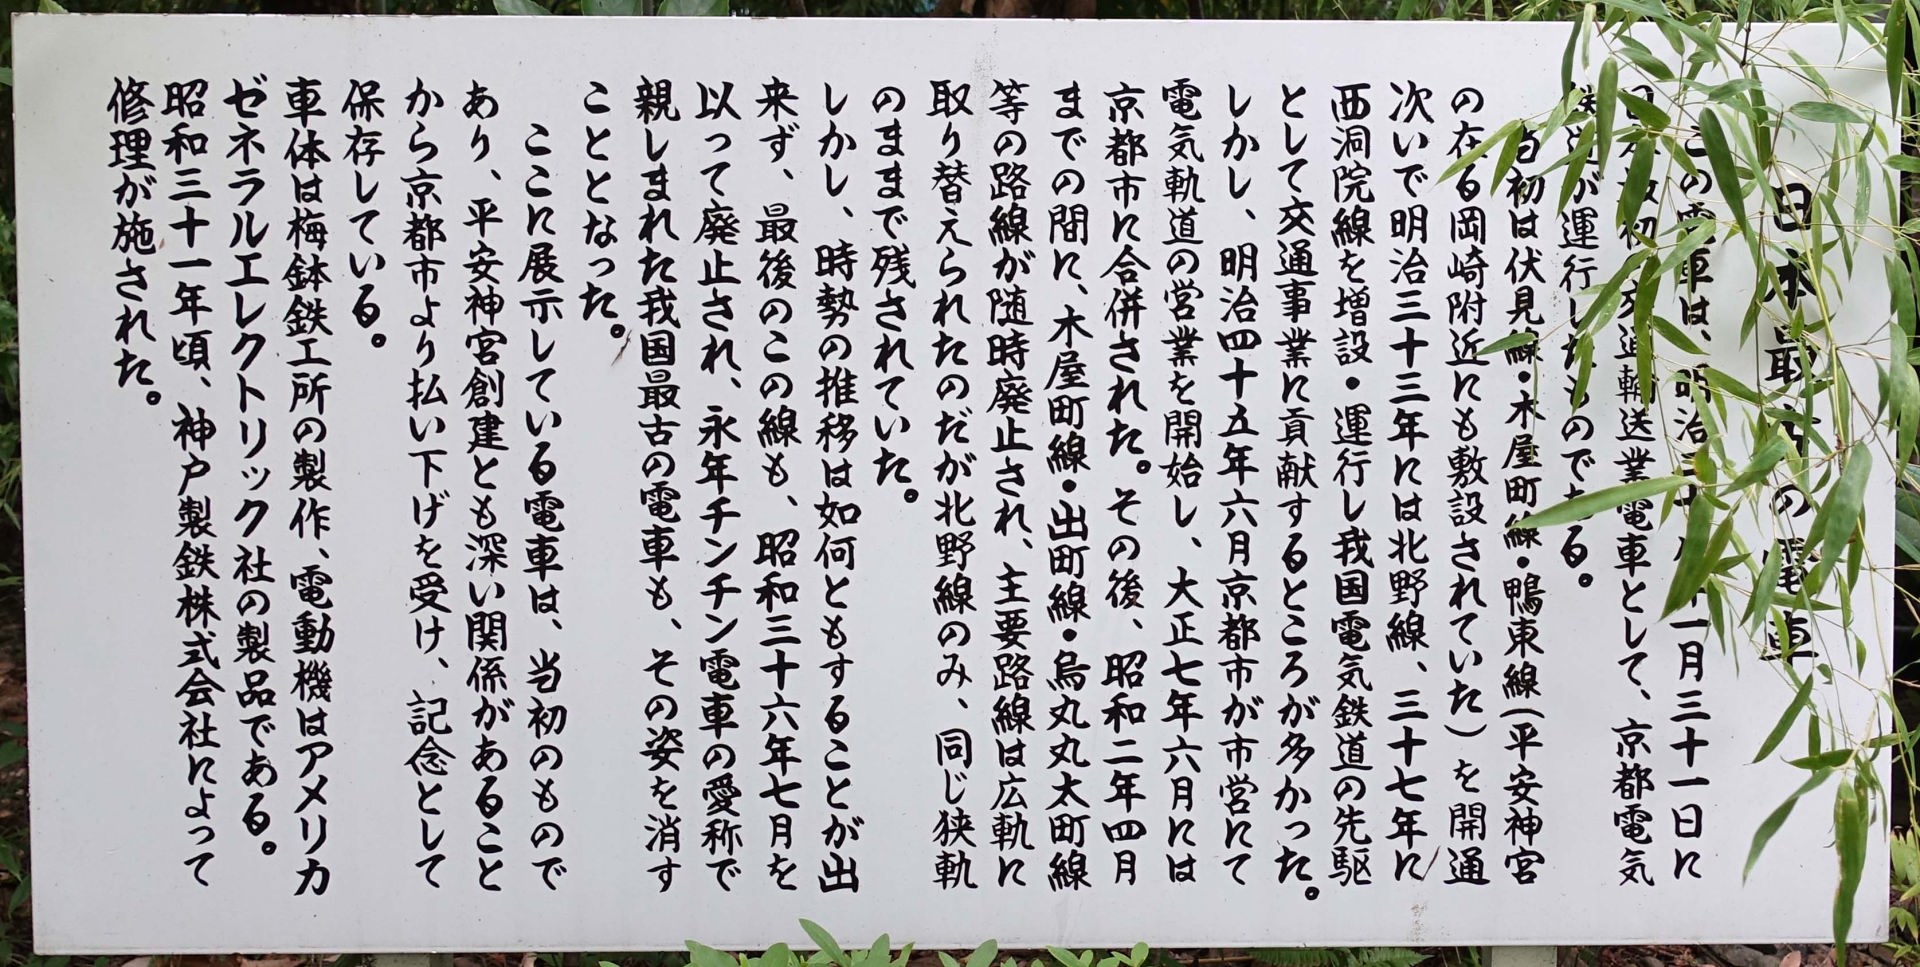 日本最古の電車
この電車は、明治二十八年一月三十一日に
日本最初の交通輸送業電車として、京都電気
鉄道が運行したものである。
当初は伏見線・木屋町線・鴨東線(平安神宮
の在る岡崎附近にも敷設されていた)を開通
次いで明治三十三年には北野線、三十七年に
西洞院線を増設・運行し我国電気鉄道の先駆
として交通事業に貢献するところが多かった。
しかし、明治四十五年六月京都市が市営にて
電気軌道の営業を開始し、大正七年六月には
京都市に合併された。その後、昭和二年四月
までの間に、木屋町線・出町線・烏丸丸太町線
等の路線が随時廃止され、主要路線は広軌に
取り替えられたのだが北野線のみ、同じ狭軌
のままで残されていた。
しかし、時勢の推移は如何ともすることが出
来ず、最後のこの線も、昭和三十六年七月を
以って廃止され、永年チンチン電車の愛称で
親しまれた我国最古の電車も、その姿を消す
こととなった。
ここに展示している電車は、当初のもので
あり、平安神宮創建とも深い関係があること
から京都市より払い下げを受け、記念として
保存している。
車体は梅鉢鉄工所の製作、電動機はアメリカ
ゼネラルエレクトリック社の製品である。
昭和三十一年頃、神戸製鉄株式会社によって
修理が施された。